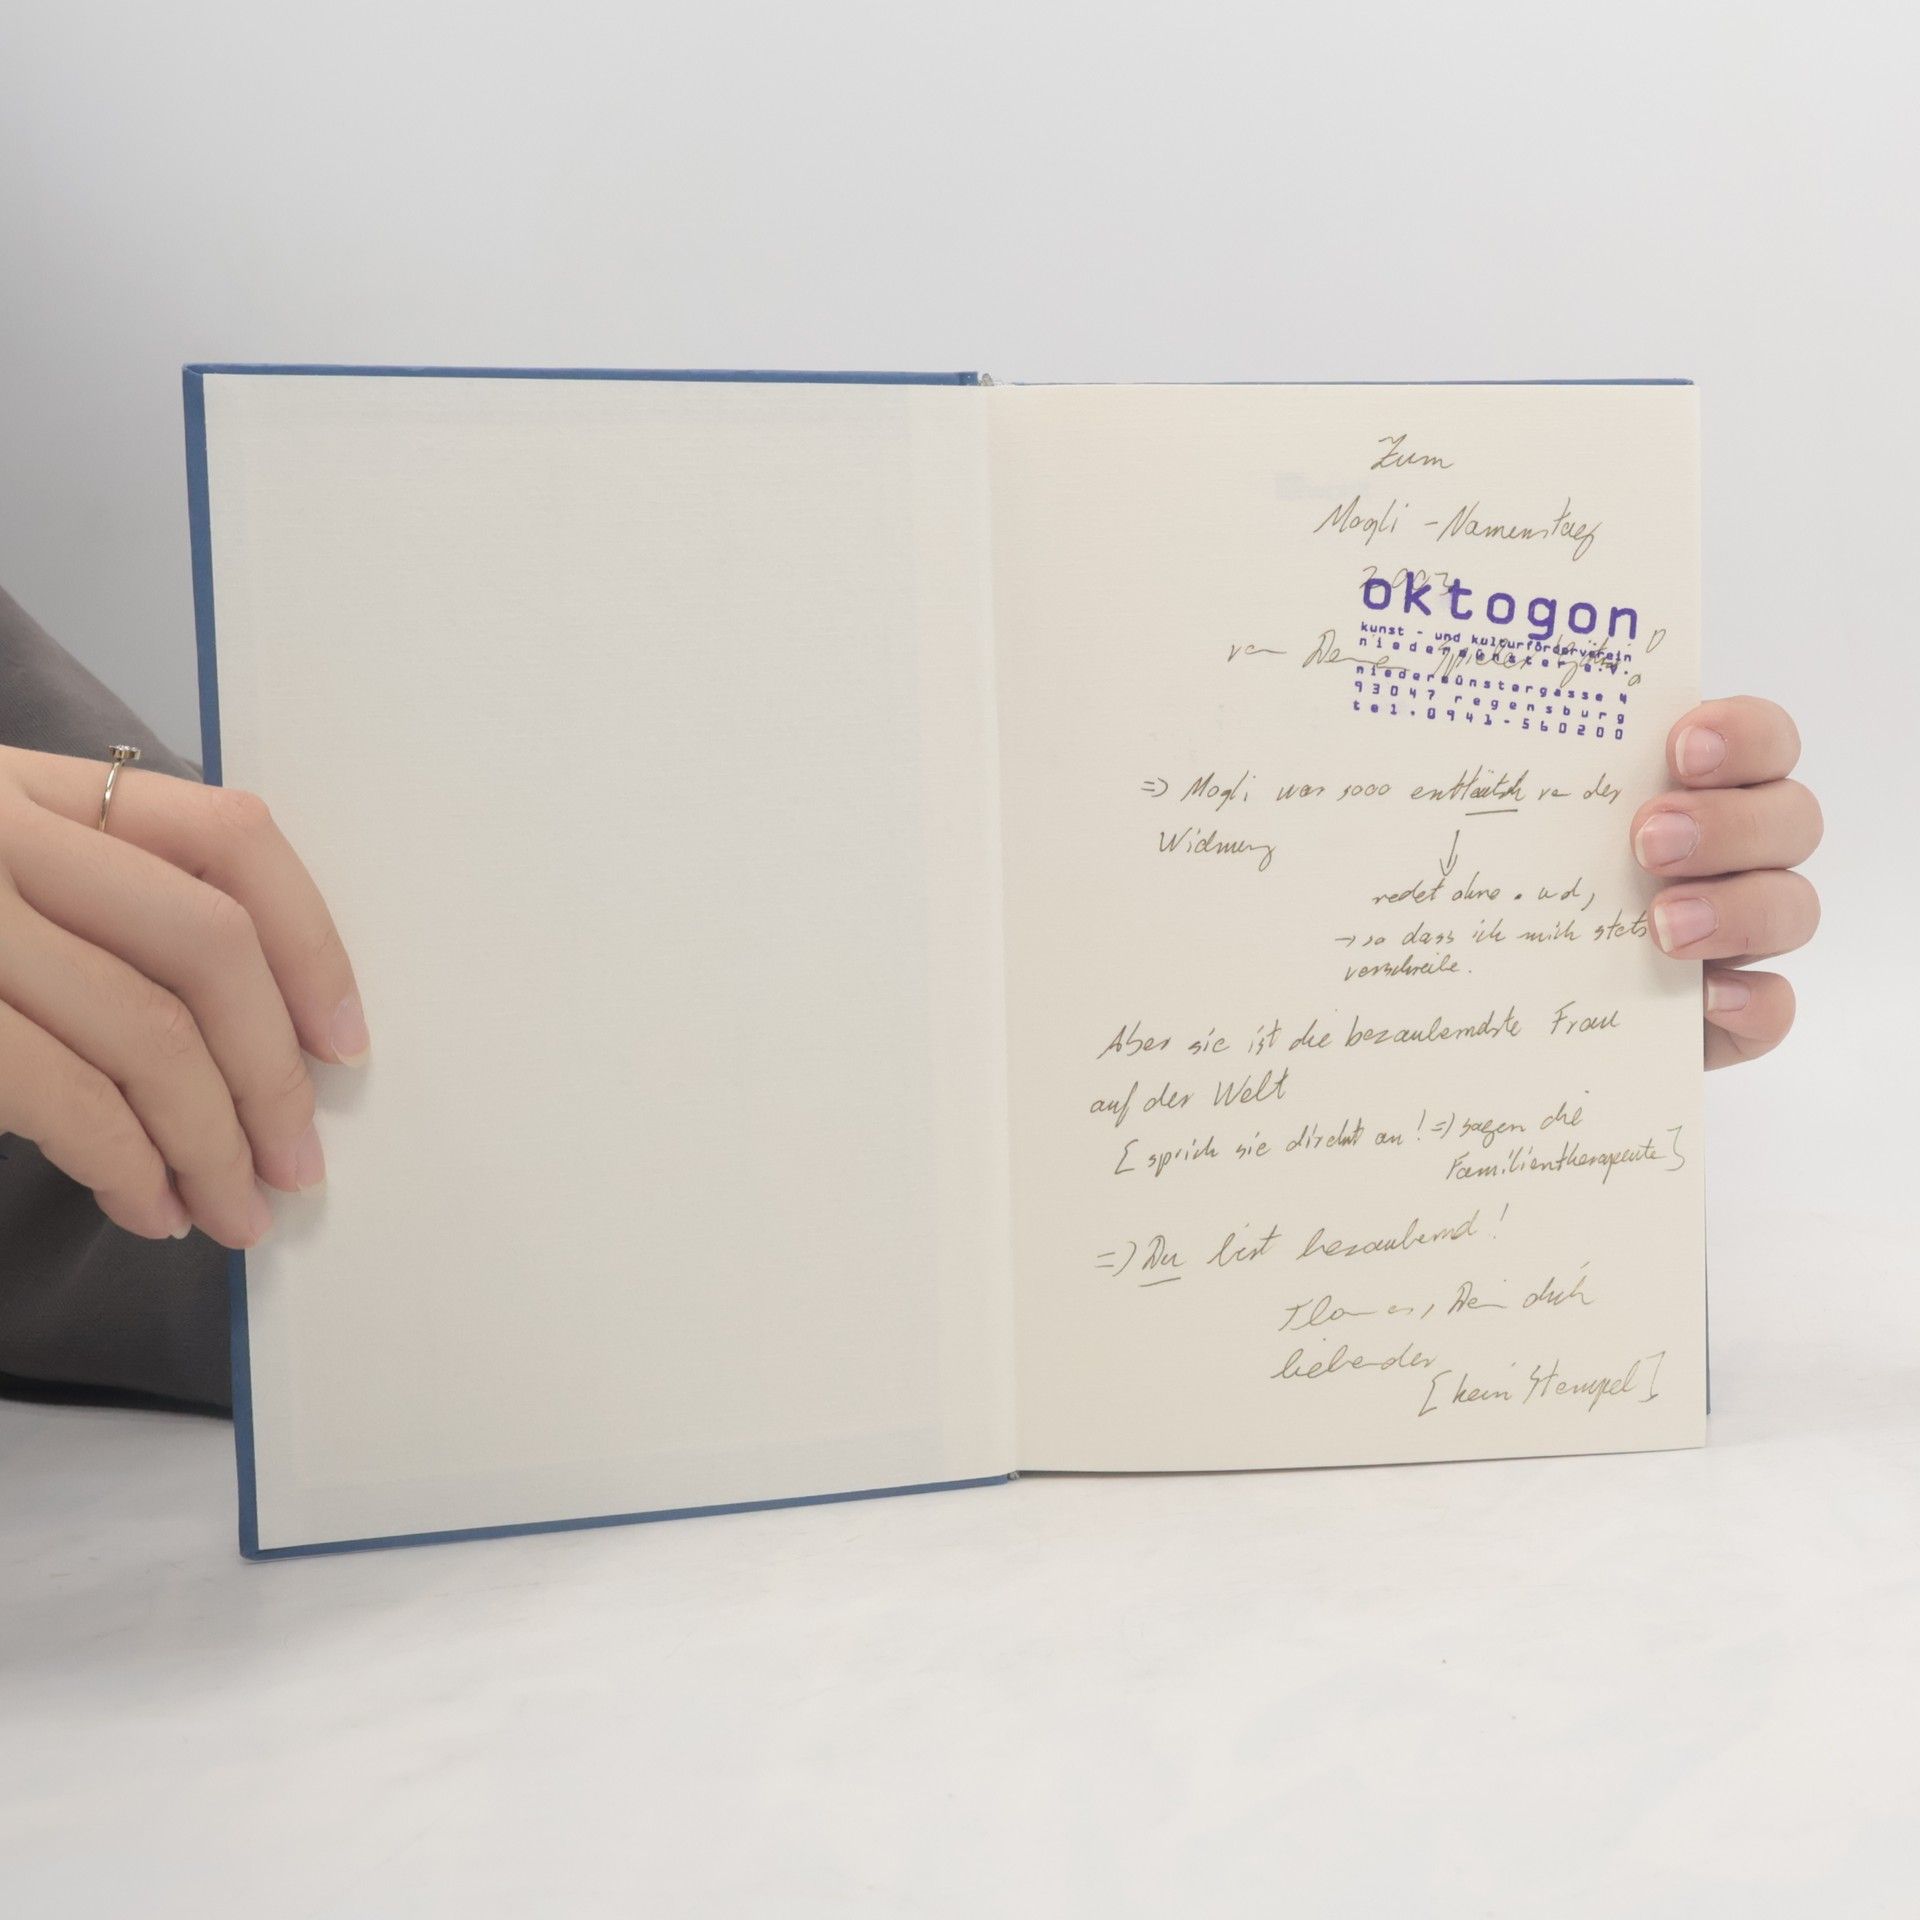 Zum
Mogli - Namenstag
2003
oktogon
kunst - und kulturförderverein
niedermünster e.V.
von
niedermünstergasse 4
93047 regensburg
tel.0941-560200
=> Mogli war sooo enttäutsch von der
Widmung
↓
redet ohne . und ,
→ so dass ich mich stets
verschreibe.
Aber sie ist die bezauberndste Frau
auf der Welt
[ sprich sie direkt an! => sagen die
Familientherapeute]
=> Du bist bezaubernd!
, Dein dich
liebender
[kein Stempel]